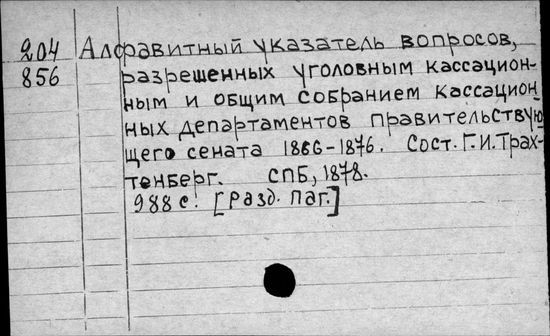 204 Алфавитный указатель вопросов,
856 разрешенных уголовным кассацион-
ным и общим собранием кассацион
ных департаментов правительствую
щего сената 1866-1876. Сост. Г.И.Трах-
тенберг. СПБ, 1878.
988 с. [разд. паг.]